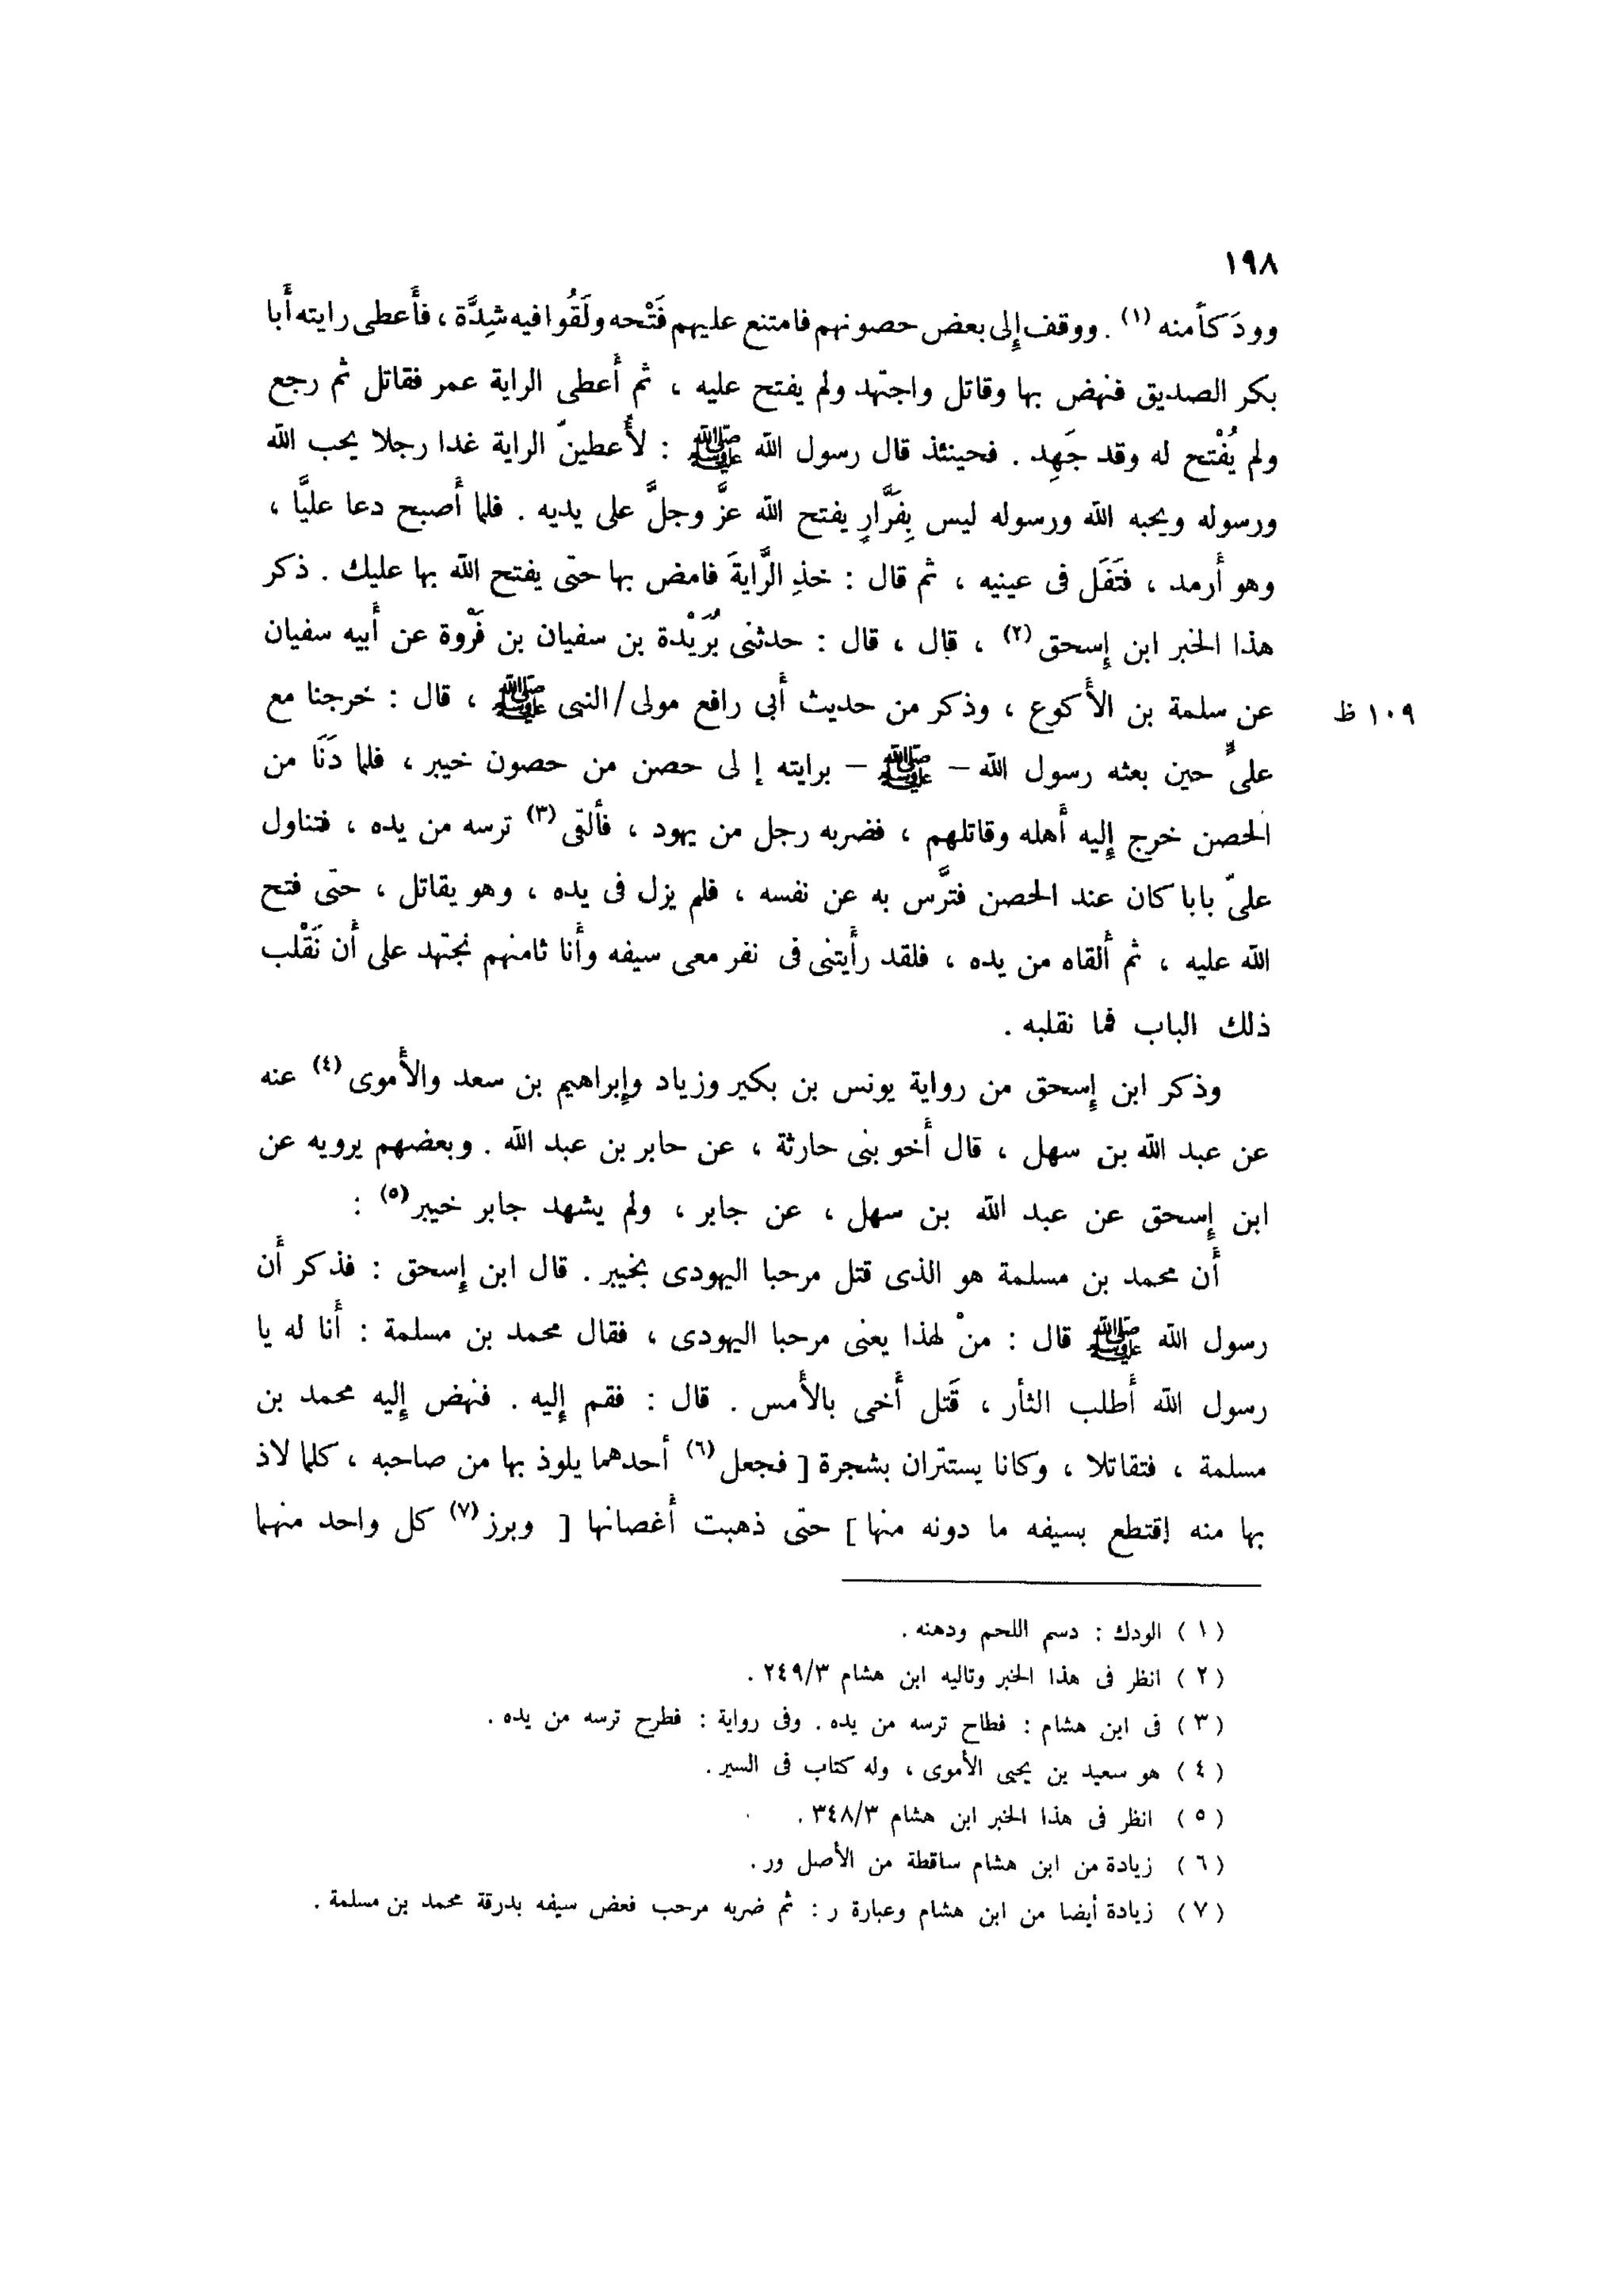 ١٩٨
وودَكاً منه (١) . ووقف إلى بعض حصونهم فامتنع عليهم فَتْحه ولَقُوا فيه شِدَّة ، فأَعطى رايته أَبا
بكر الصديق فنهض بها وقاتل واجتهد ولم يفتح عليه ، ثم أَعطى الراية عمر فقاتل ثم رجع
ولم يُفْتح له وقد جَهِد . فحينئذ قال رسول الله ﷺ : لأُعطينّ الراية غدا رجلا يحب الله
ورسوله ويحبه الله ورسوله ليس بِفَرَّارٍ يفتح الله عزَّ وجلَّ على يديه . فلما أَصبح دعا عليًّا ،
وهو أَرمد ، فَتَفَل فى عينيه ، ثم قال : خذِ الرَّايةَ فامض بها حتى يفتح الله بها عليك . ذكر
هذا الخبر ابن إِسحق (٢) ، قال ، قال : حدثنى بُرَيْدة بن سفيان بن فَرْوة عن أَبيه سفيان
عن سلمة بن الأَكوع ، وذكر من حديث أَبى رافع مولى/النبى ﷺ ، قال : خرجنا مع
١٠٩ ظ
علىٍّ حين بعثه رسول الله – ﷺ – برايته إ لى حصن من حصون خيبر ، فلما دَنَا من
الحصن خرج إِليه أَهله وقاتلهم ، فضربه رجل من يهود ، فأَلقى (٣) ترسه من يده ، فتناول
علىّ بابا كان عند الحصن فتَّرس به عن نفسه ، فلم يزل فى يده ، وهو يقاتل ، حتى فتح
الله عليه ، ثم أَلقاه من يده ، فلقد رأَيتنى فى نفر معى سيفه وأَنا ثامنهم نجتهد على أَن نَقْلب
ذلك الباب فما نقلبه .
وذكر ابن إِسحق من رواية يونس بن بكير وزياد وإِبراهيم بن سعد والأَموى (٤) عنه
عن عبد الله بن سهل ، قال أَخو بنى حارثة ، عن حابر بن عبد الله . وبعضهم يرويه عن
ابن إِسحق عن عبد الله بن سهل ، عن جابر ، ولم يشهد جابر خيبر (٥) :
أَن محمد بن مسلمة هو الذى قتل مرحبا اليهودى بخيبر . قال ابن إِسحق : فذكر أَن
رسول الله ﷺ قال : منْ لهذا يعنى مرحبا اليهودى ، فقال محمد بن مسلمة : أَنا له يا
رسول الله أَطلب الثأر ، قَتل أَخى بالأَمس . قال : فقم إِليه . فنهض إِليه محمد بن
مسلمة ، فتقاتلا ، وكانا يستتران بشجرة [ فجعل (٦) أحدهما يلوذ بها من صاحبه ، كلما لاذ
بها منه اقتطع بسيفه ما دونه منها ] حتى ذهبت أَغصانها [ وبرز (٧) كل واحد منهما
( ١ ) الودك : دسم اللحم ودهنه .
( ٢ ) انظر فى هذا الخبر وتاليه ابن هشام ٢٤٩/٣ .
( ٣ ) فى ابن هشام : فطاح ترسه من يده . وفى رواية : فطرح ترسه من يده .
( ٤ ) هو سعيد بن يحيى الأموى ، وله كتاب فى السير .
( ٥ ) انظر فى هذا الخبر ابن هشام ٣٤٨/٣ .
( ٦ ) زيادة من ابن هشام ساقطة من الأصل ور .
( ٧ ) زيادة أيضا من ابن هشام وعبارة ر : ثم ضربه مرحب فعض سيفه بدرقة محمد بن مسلمة .